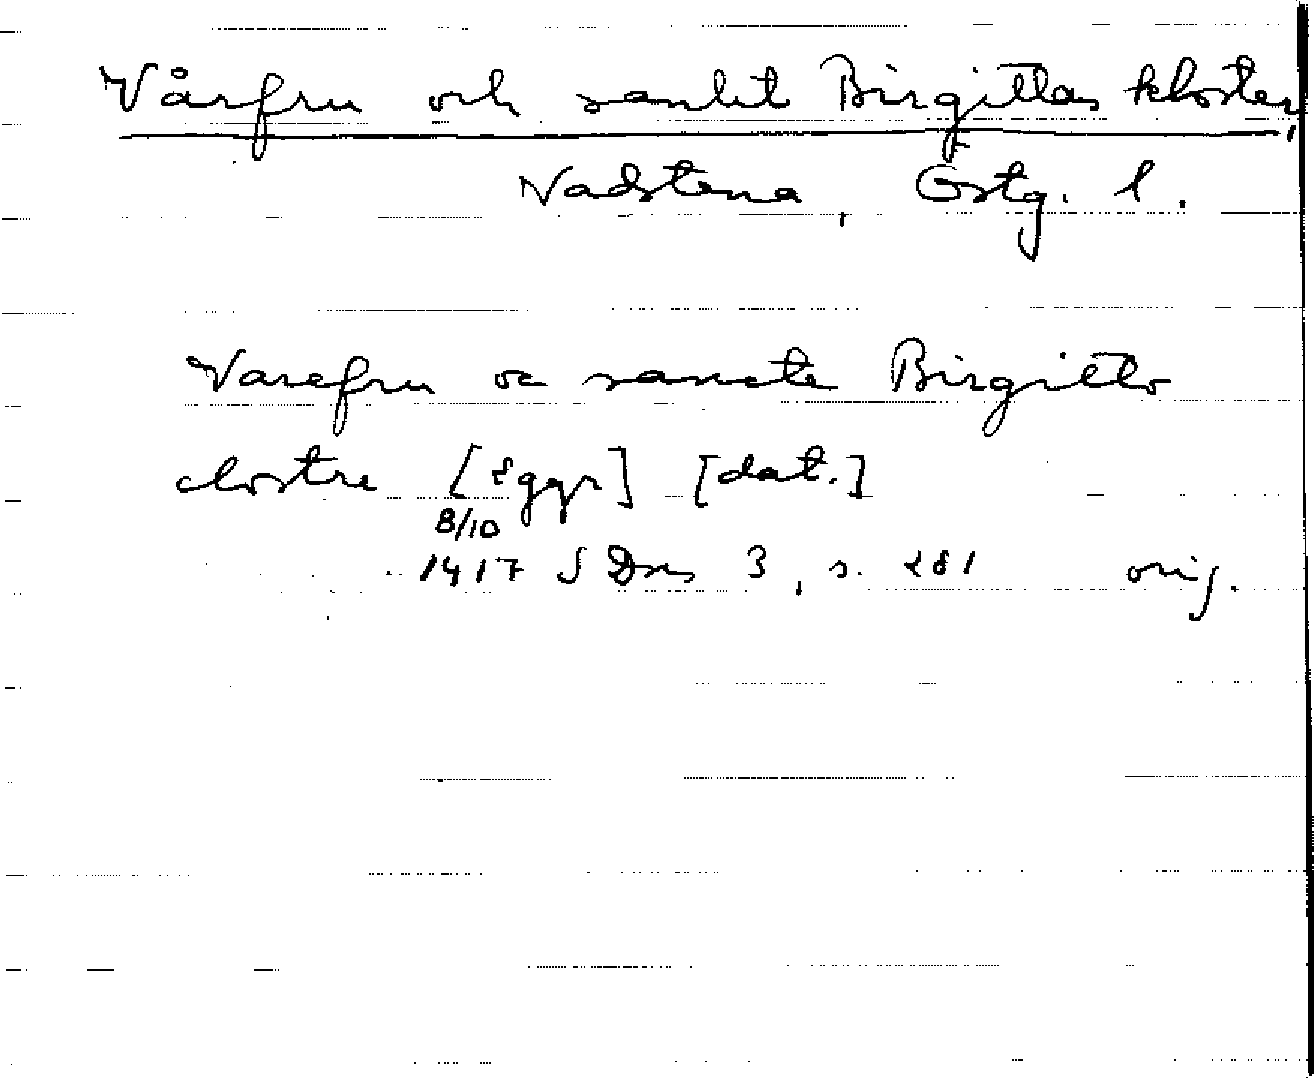 Vårfru och sankt Birgittas kloster,
Vadstena, Östg. l.
Varefru oc sancte Birgitto
clostre [2 ggr] [dat.]
8/10
1417 SDns 3, s. 281 orig.